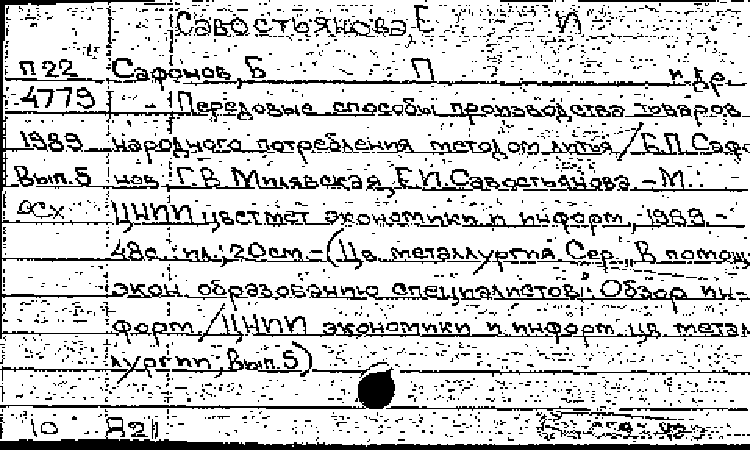 Савостьянова, Е И
П22 Сафонов, Б П и др.
4779 Передовые способы производства товаров
1989 народного потребления методом литья / Б.П. Сафо-
Вып.5 нов, Г.В. Милявская, Е.И. Савостьянова. - М.:
ОСХ ЦНИИцветмет экономики и информ, 1989. -
48с.: ил.; 20см. - (Цв. металлургия. Сер. "В помощь
экон. образованию специалистов": Обзор. ин-
форм. / ЦНИИ экономики и информ. цв. метал-
лургии; Вып.5)
10 821